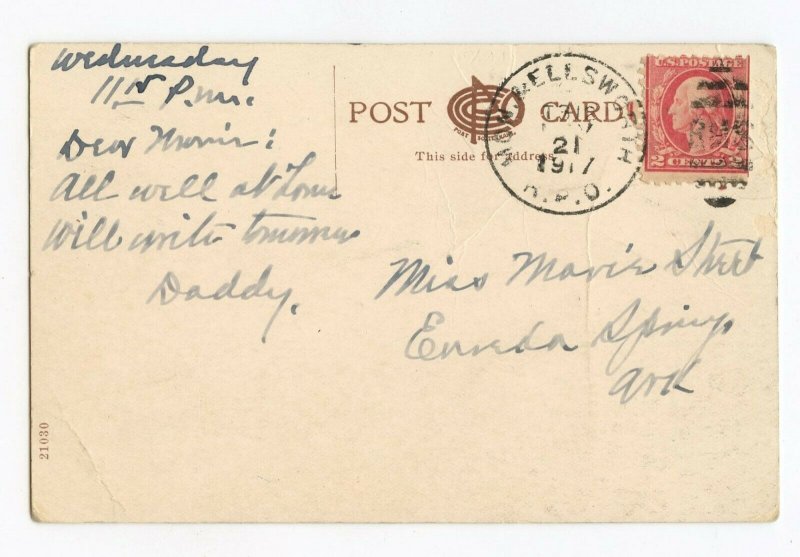 Wednesday
11 15 P.m.
Dear Mavis:
All well at home
Will write tomorrow
Daddy.
POST CARD
This side for address
21
1917
R.P.O.
U.S. POSTAGE
2 CENTS 2
Miss Mavis Street
Eureka Springs
Ark
21030